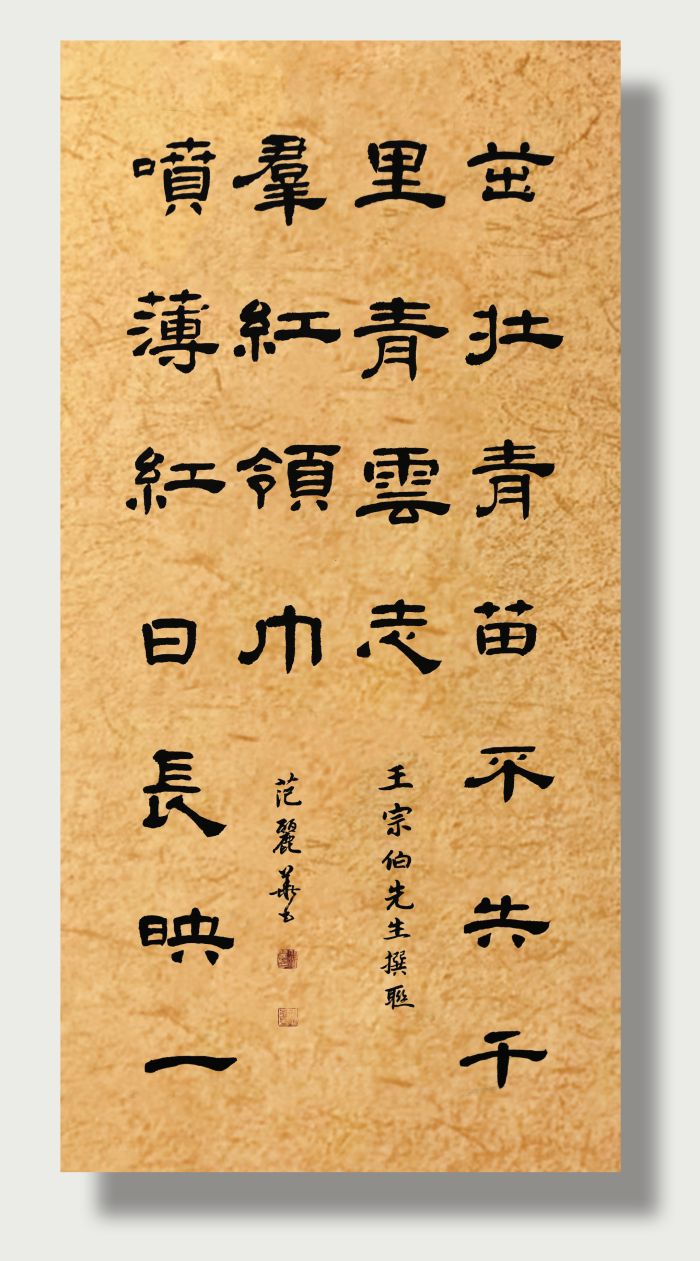 茁壯青苗不失千
里青雲志
王宗伯先生撰聯
噴薄紅日長映一
羣紅領巾
范麗華书